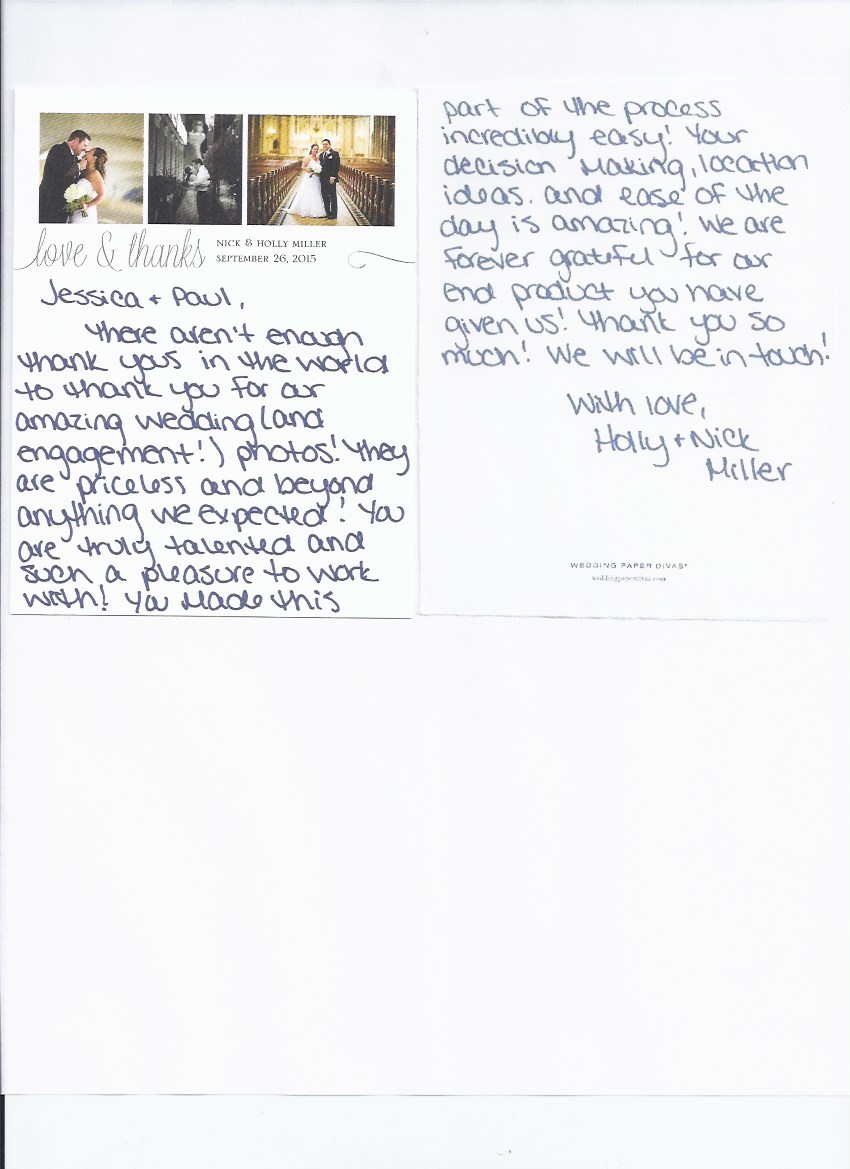 love & thanks
NICK & HOLLY MILLER
SEPTEMBER 26, 2015
Jessica + Paul,
There aren't enough
thank yous in the world
to thank you for our
amazing wedding (and
engagement!) photos! They
are priceless and beyond
anything we expected! You
are truly talented and
such a pleasure to work
with! You made this
part of the process
incredibly easy! Your
decision making, location
ideas. and ease of the
day is amazing! We are
forever grateful for our
end product you have
given us! Thank you so
much! We will be in touch!
With love,
Holly + Nick
Miller
WEDDING PAPER DIVAS®
weddingpaperdivas.com